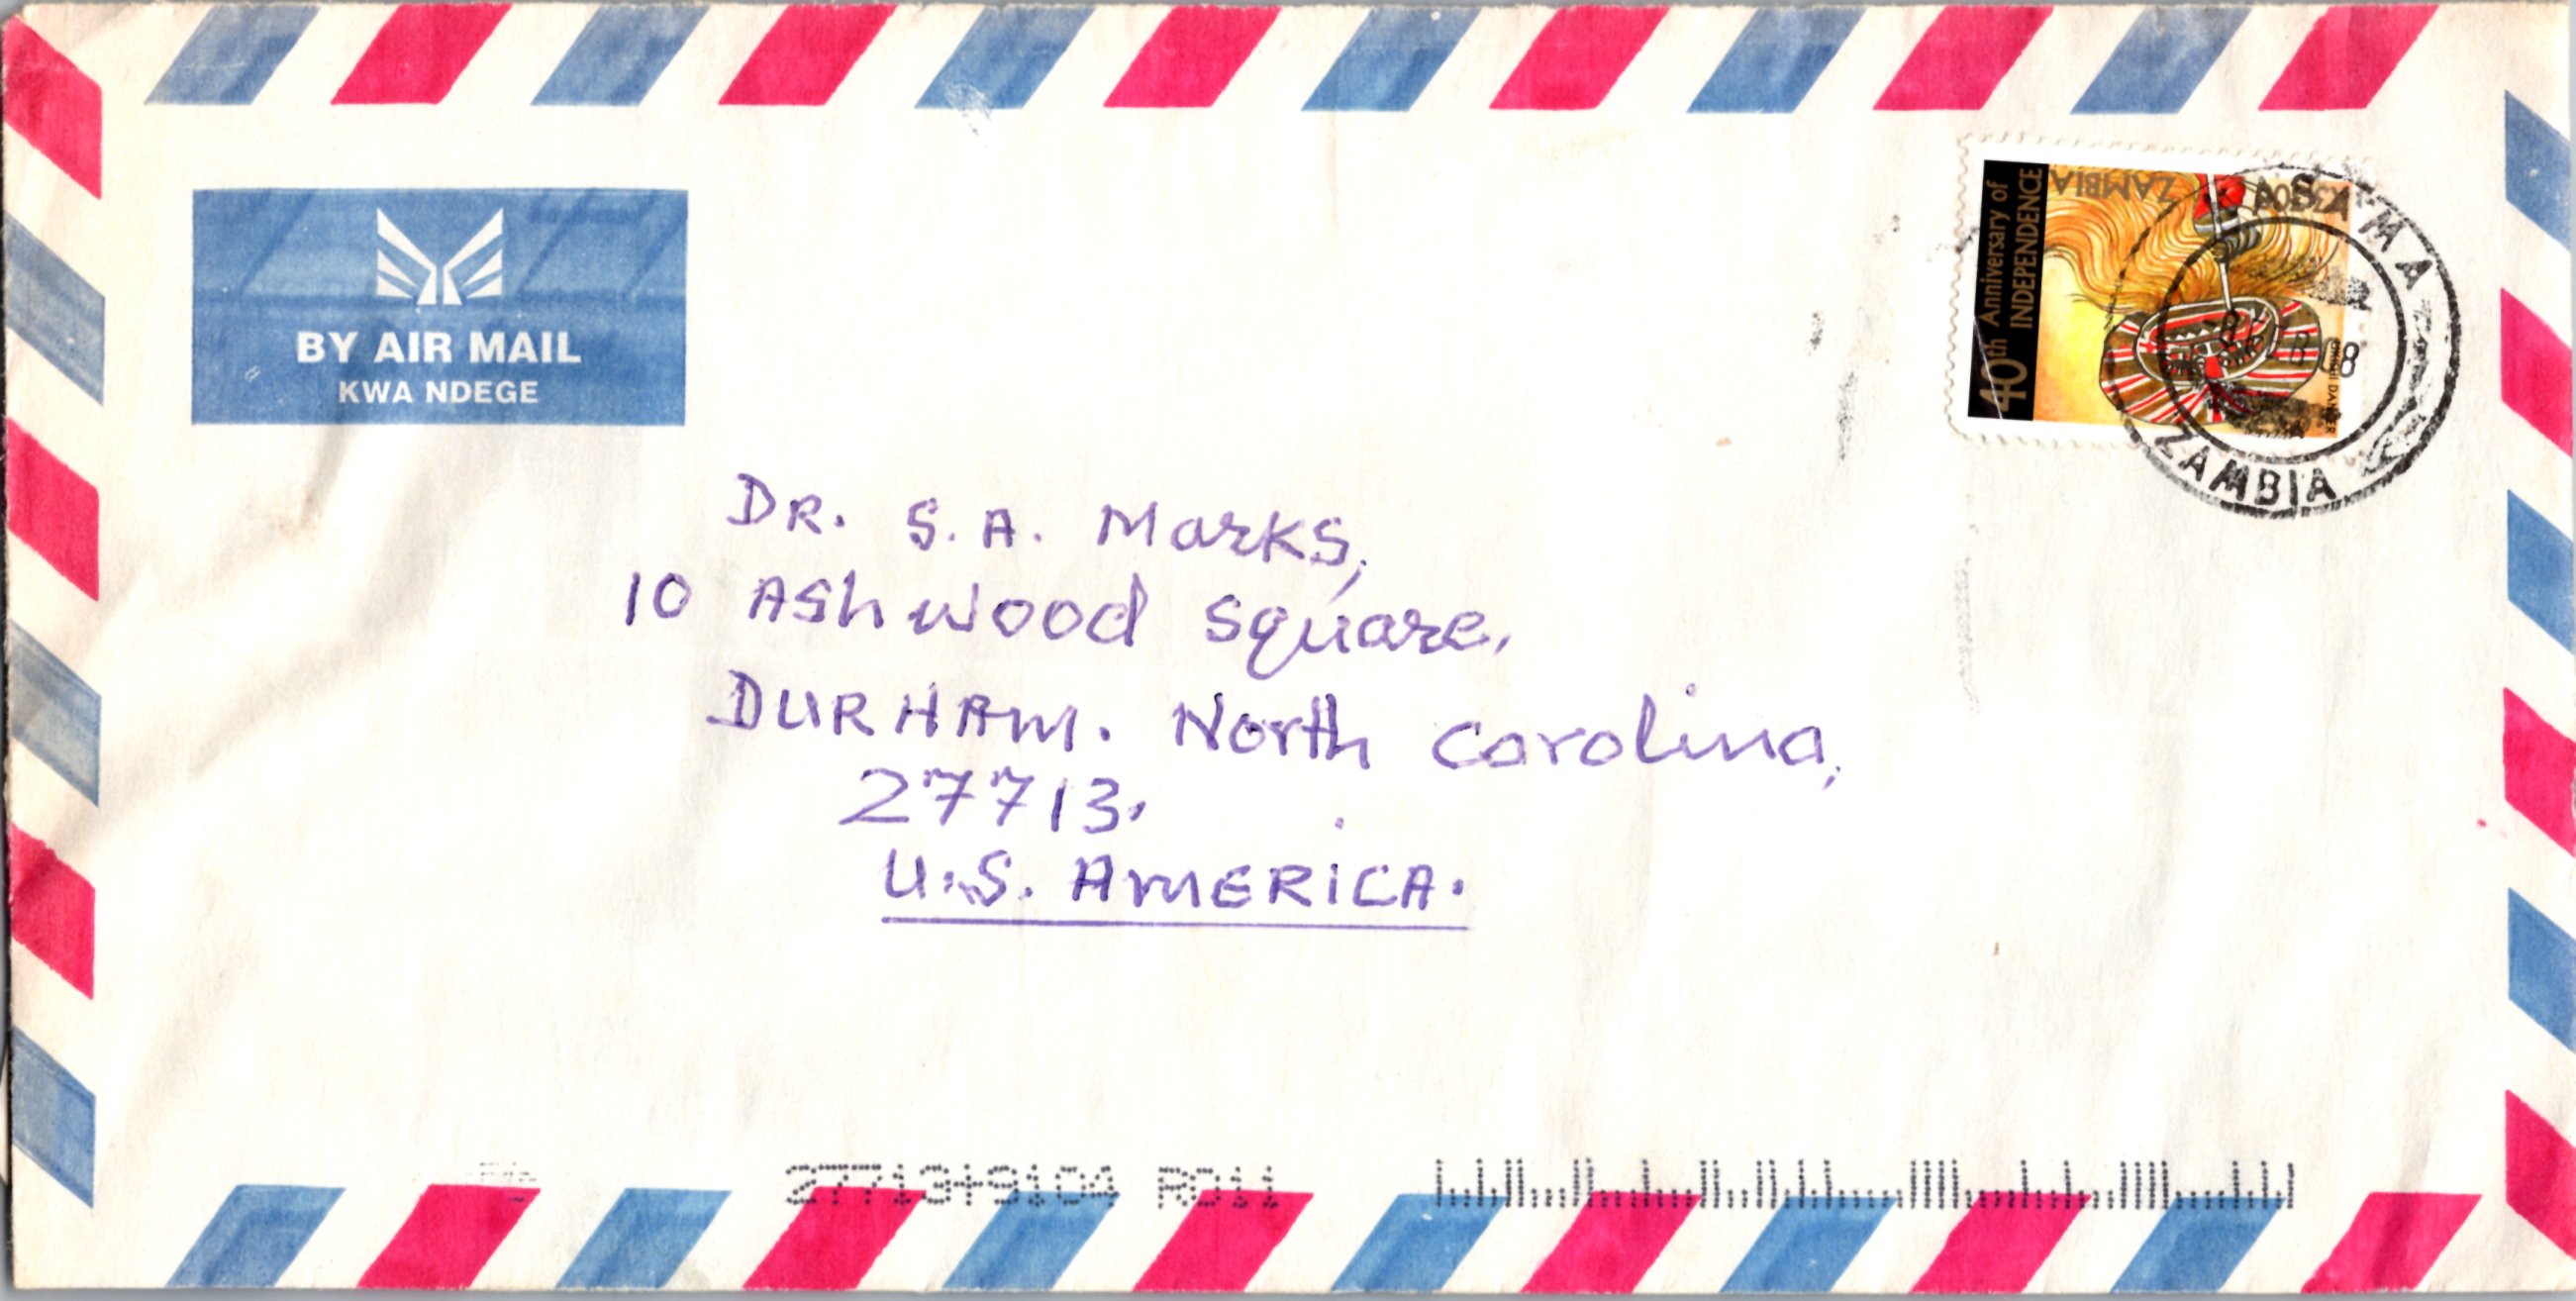 BY AIR MAIL
KWA NDEGE
40th Anniversary of
INDEPENDENCE
ZAMBIA
ZAMBIA
DR. S. A. Marks,
10 Ashwood square,
DURHAM. North Carolina,
27713.
U.S. AMERICA.
27713+9104 R011